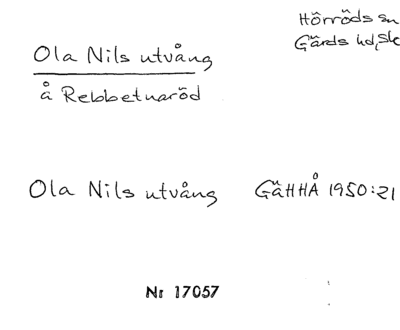 Hörröds sn
Gärds hd, Sk
Ola Nils utvång
å Rebbetuaröd
Ola Nils utvång GäHHÅ 1950:21
Nr 17057